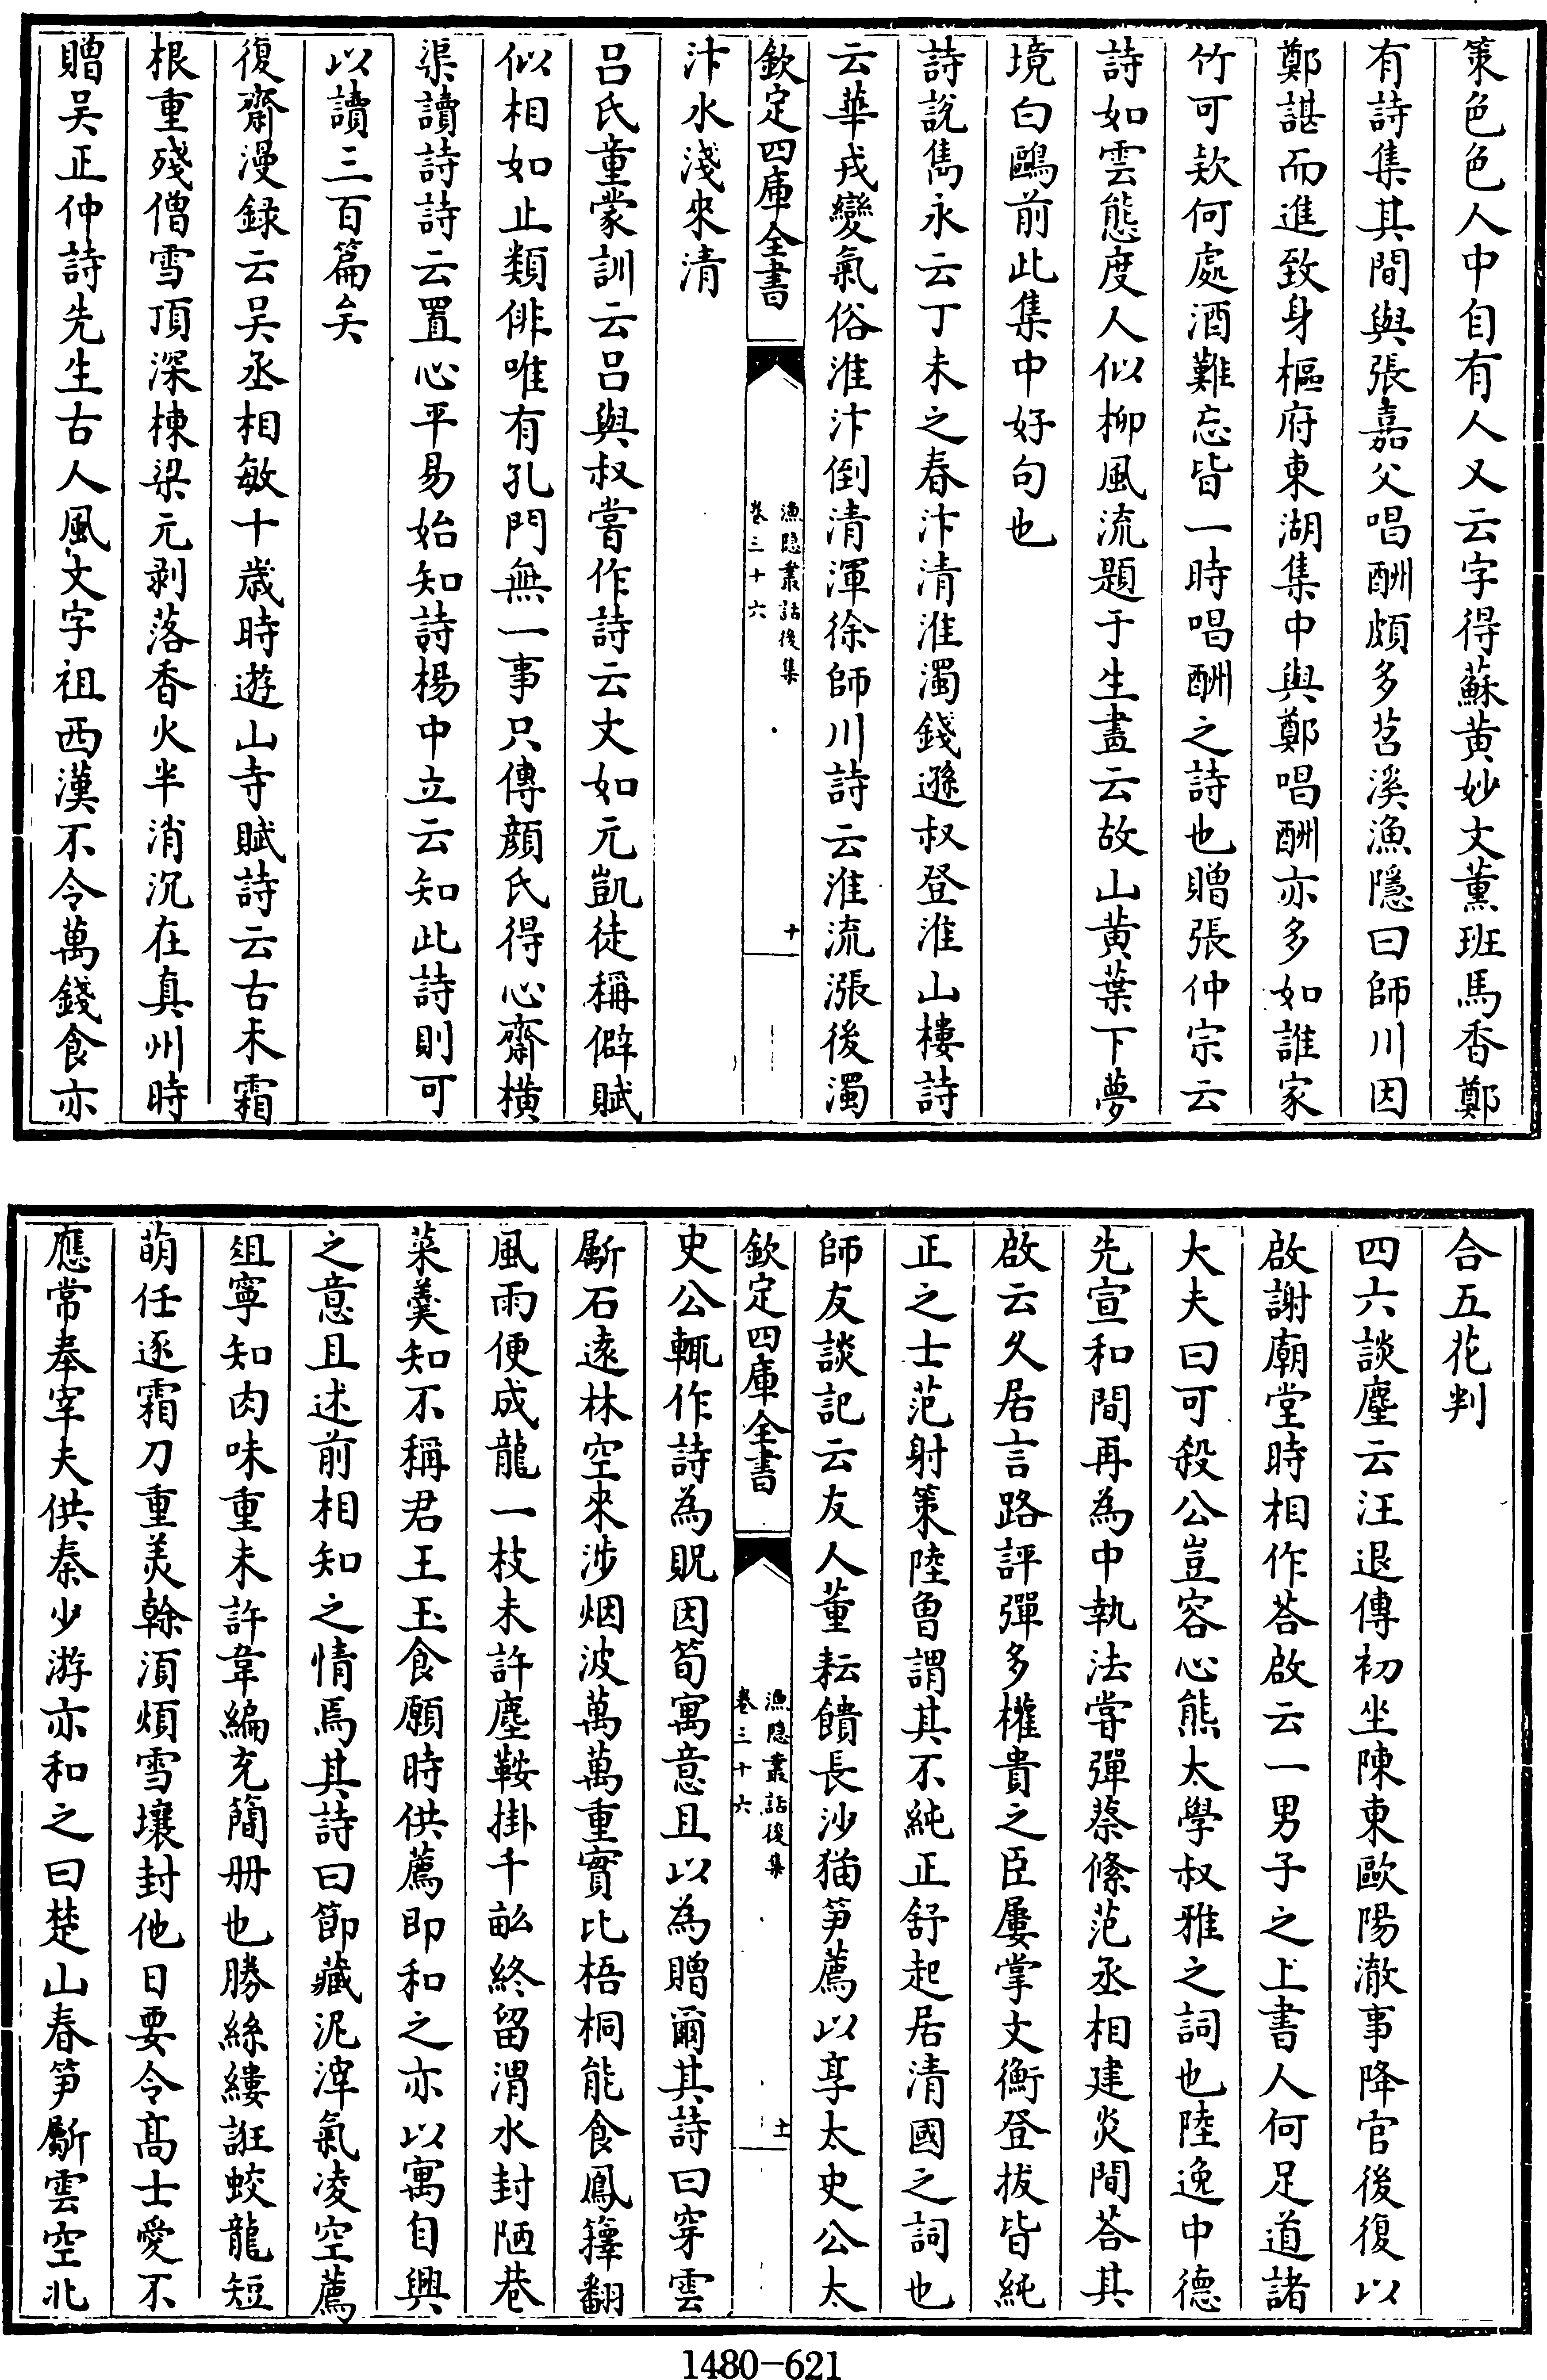 策色色人中自有人又云字得蘇黄妙文薫班馬香鄭
有詩集其間與張嘉父唱酬頗多苕溪漁隱曰師川因
鄭諶而進致身樞府東湖集中與鄭唱酬亦多如誰家
竹可欵何處酒難忘皆一時唱酬之詩也贈張仲宗云
詩如雲態度人似柳風流題于生畫云故山黄葉下夢
境白鷗前此集中好句也
詩説雋永云丁未之春汴清淮濁錢遜叔登淮山樓詩
云華戎變氣俗淮汴倒清渾徐師川詩云淮流漲後濁
欽定四庫全書
漁隱叢話後集
卷三十六
十
汴水淺來清
吕氏童蒙訓云吕與叔嘗作詩云文如元凱徒稱僻賦
似相如止類俳唯有孔門無一事只傳顔氏得心齋横
渠讀詩詩云置心平易始知詩楊中立云知此詩則可
以讀三百篇矣
復齋漫録云吴丞相敏十歲時遊山寺賦詩云古木霜
根重殘僧雪頂深棟梁元剥落香火半消沉在真州時
贈吴正仲詩先生古人風文字祖西漢不令萬錢食亦
合五花判
四六談麈云汪退傳初坐陳東歐陽澈事降官後復以
啟謝廟堂時相作荅啟云一男子之上書人何足道諸
大夫曰可殺公豈容心熊太學叔雅之詞也陸逸中德
先宣和間再為中執法嘗彈蔡絛范丞相建炎間荅其
啟云久居言路評彈多權貴之臣屢掌文衡登拔皆純
正之士范射策陸魯謂其不純正舒起居清國之詞也
師友談記云友人董耘饋長沙猫笋薦以享太史公太
欽定四庫全書
漁隱叢話後集
卷三十六
十一
史公輒作詩為貺因筍寓意且以為贈爾其詩曰穿雲
斸石遠林空來涉烟波萬萬重實比梧桐能食鳳籜翻
風雨便成龍一枝未許塵鞍掛千畝終留渭水封陋巷
菜羮知不稱君王玉食願時供薦即和之亦以寓自興
之意且述前相知之情焉其詩曰節藏泥滓氣凌空薦
俎寧知肉味重未許韋編充簡册也勝絲縷誑蛟龍短
萌任逐霜刀重美榦湏煩雪壤封他日要令髙士愛不
應常奉宰夫供秦少游亦和之曰楚山春笋斸雲空北
1480-621